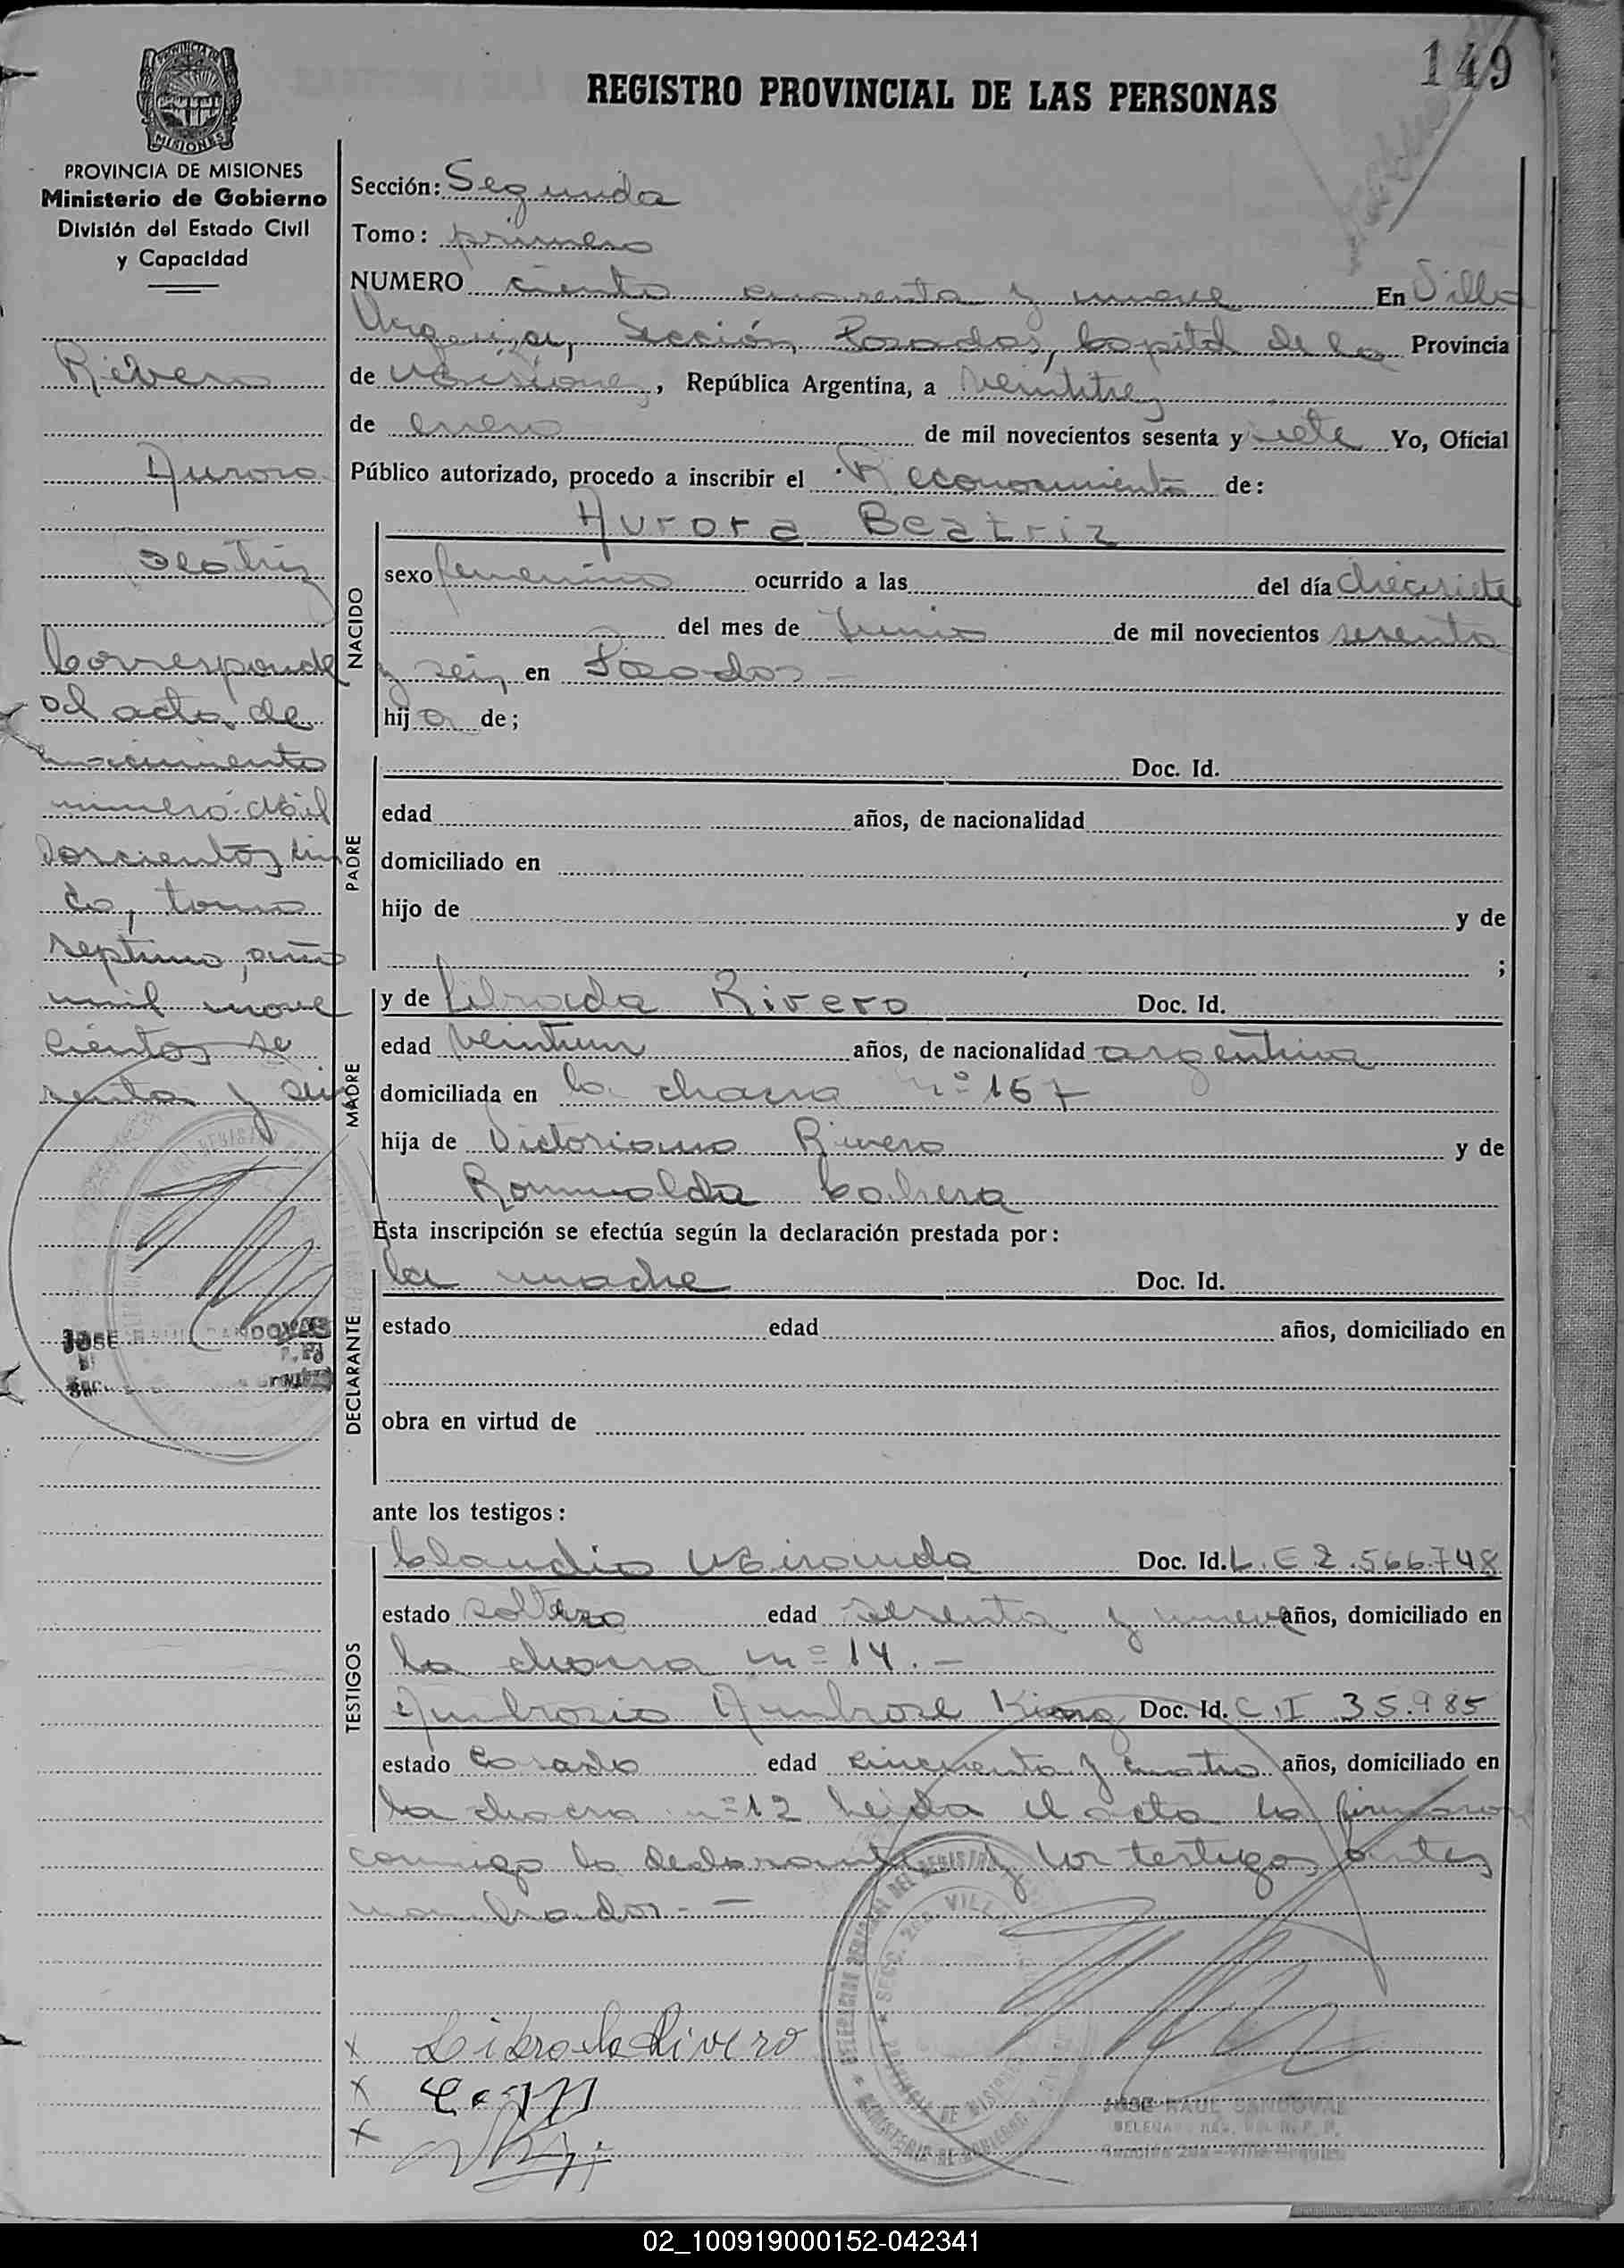 149
REGISTRO PROVINCIAL DE LAS PERSONAS
PROVINCIA DE MISIONES
MISIONES
PROVINCIA DE MISIONES
Ministerio de Gobierno
División del Estado Civil
y Capacidad
Rivero
Aurora
Beatriz
Corresponde
al acta de
nacimiento
número mil
doscientos cin
co, tomo
septimo, año
mil nove
cientos se
senta y seis
JOSE RAUL SANDOVAL
Sección: Segunda
Tomo: primero
NUMERO ciento cuarenta y nueve En Villa
Urquiza, Sección Posadas, Capital de la Provincia
de Misiones, República Argentina, a veintitres
de enero de mil novecientos sesenta y siete Yo, Oficial
Público autorizado, procedo a inscribir el Reconocimiento de:
NACIDO
Aurora Beatriz
sexo femenino ocurrido a las del día diecisiete
del mes de Junio de mil novecientos sesenta
y seis en Posadas -
hija de;
PADRE
Doc. Id.
edad años, de nacionalidad
domiciliado en
hijo de y de
;
MADRE
y de Librada Rivero Doc. Id.
edad veintiun años, de nacionalidad argentina
domiciliada en la chacra nº 167
hija de Victoriano Rivero y de
Romualda Cabrera
Esta inscripción se efectúa según la declaración prestada por:
DECLARANTE
la madre Doc. Id.
estado edad años, domiciliado en
obra en virtud de
ante los testigos:
TESTIGOS
Claudio Miranda Doc. Id. L. E 2.566.748
estado soltero edad sesenta y nueve años, domiciliado en
la chacra nº 14. -
Ambrosio Ambrose King Doc. Id. C.I 35.985
estado casado edad cincuenta y cuatro años, domiciliado en
la chacra nº 12 leida el acta la firmaron
conmigo la declarante y los testigos antes
nombrados. -
x Librada Rivero
x
x
JOSE RAUL SANDOVAL
02_100919000152-042341